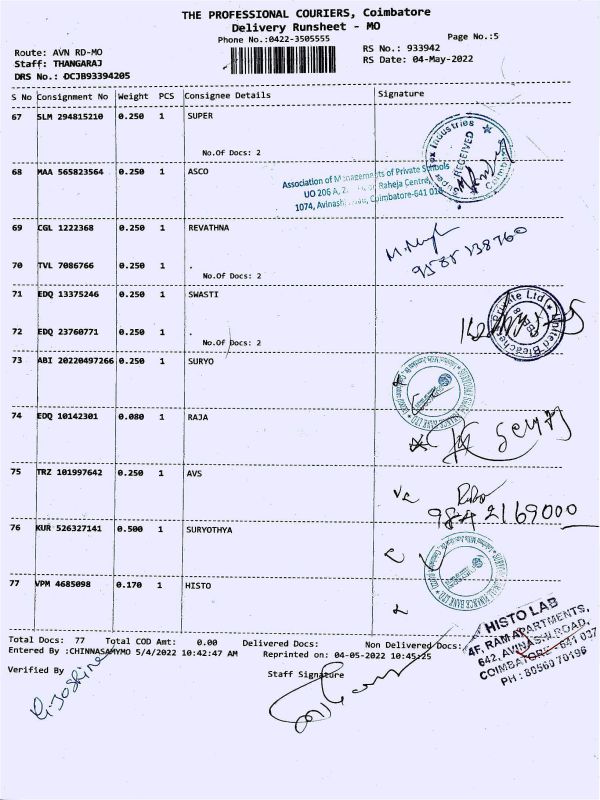 THE PROFESSIONAL COURIERS, Coimbatore
Delivery Runsheet - MO
Phone No.:0422-3505555
Page No.:5
Route: AVN RD-MO
RS No.: 933942
Staff: THANGARAJ
RS Date: 04-May-2022
DRS No.: DCJB93394205
S No Consignment No Weight PCS Consignee Details Signature
67 SLM 294815210 0.250 1 SUPER
No.Of Docs: 2
Industries
RECEIVED
68 MAA 565823564 0.250 1 ASCO
Association of Managements of Private Schools
UO 206 A, Raheja Centre,
1074, Avinashi Coimbatore-641 018
69 CGL 1222368 0.250 1 REVATHNA
70 TVL 7086766 0.250 1 .
No.Of Docs: 2
71 EDQ 13375246 0.250 1 SWASTI
Private Ltd
United Bleachers
72 EDQ 23760771 0.250 1 .
No.Of Docs: 2
73 ABI 20220497266 0.250 1 SURYO
74 EDQ 10142301 0.080 1 RAJA
75 TRZ 101997642 0.250 1 AVS
9842169000
76 KUR 526327141 0.500 1 SURYOTHYA
FINANCE BANK LTD
77 VPM 4685098 0.170 1 HISTO
HISTO LAB
4F, RAM APARTMENTS,
642, AVINASHI ROAD,
COIMBATORE - 641 037
PH : 80560 70196
Total Docs: 77 Total COD Amt: 0.00 Delivered Docs: Non Delivered Docs:
Entered By :CHINNASAMYMO 5/4/2022 10:42:47 AM Reprinted on: 04-05-2022 10:45:25
Verified By
Staff Signature